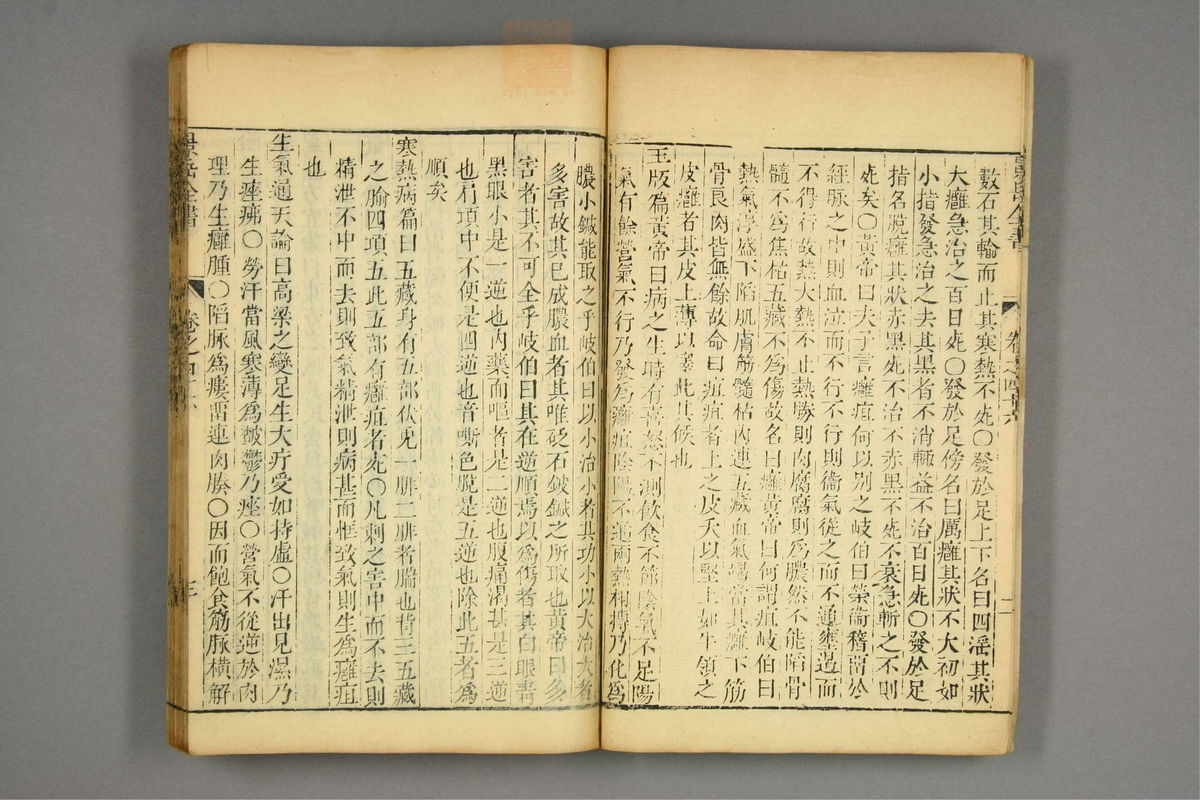 數石其輸而止其寒熱不死○發於足上下名曰四淫其狀
大癰急治之百日死○發於足傍名曰厲癰其狀不大初如
小指發急治之去其黑者不消輒益不治百日死○發於足
指名脫癰其狀赤黑死不治不赤黑不死不衰急斬之不則
死矣○黃帝曰夫子言癰疽何以別之岐伯曰榮衞稽畱於
經脉之中則血泣而不行不行則衞氣從之而不通壅遏而
不得行故熱大熱不止熱勝則肉腐腐則爲膿然不能陷骨
髓不爲焦枯五藏不爲傷故名曰癰黃帝曰何謂疽岐伯曰
熱氣淳盛下陷肌膚筋髓枯內連五藏血氣竭當其癰下筋
骨良肉皆無餘故命曰疽疽者上之皮夭以堅上如牛領之
皮癰者其皮上薄以澤此其候也
玉版篇黃帝曰病之生時有喜怒不測飮食不節陰氣不足陽
氣有餘營氣不行乃發爲癰疽陰陽不通兩熱相搏乃化爲
膿小鍼能取之乎岐伯曰以小治小者其功小以大治大者
多害故其已成膿血者其唯砭石鈹鍼之所取也黃帝曰多
害者其不可全乎岐伯曰其在逆順焉以爲傷者其白眼靑
黑眼小是一逆也內藥而嘔者是二逆也腹痛渴甚是三逆
也肩項中不便是四逆也音嘶色脫是五逆也除此五者爲
順矣
寒熱病篇曰五藏身有五部伏兎一腓二腓者腨也背三五藏
之腧四項五此五部有癰疽者死○凡刺之害中而不去則
精泄不中而去則致氣精泄則病甚而恇致氣則生爲癰疽
也
生氣通天論曰高梁之變足生大疔受如持虛○汗出見濕乃
生痤疿○勞汗當風寒薄爲皶鬱乃痤○營氣不從逆於肉
理乃生癰腫○陷脉爲瘻畱連肉腠○因而飽食筋脉橫解
景岳全書
卷之四十六
三